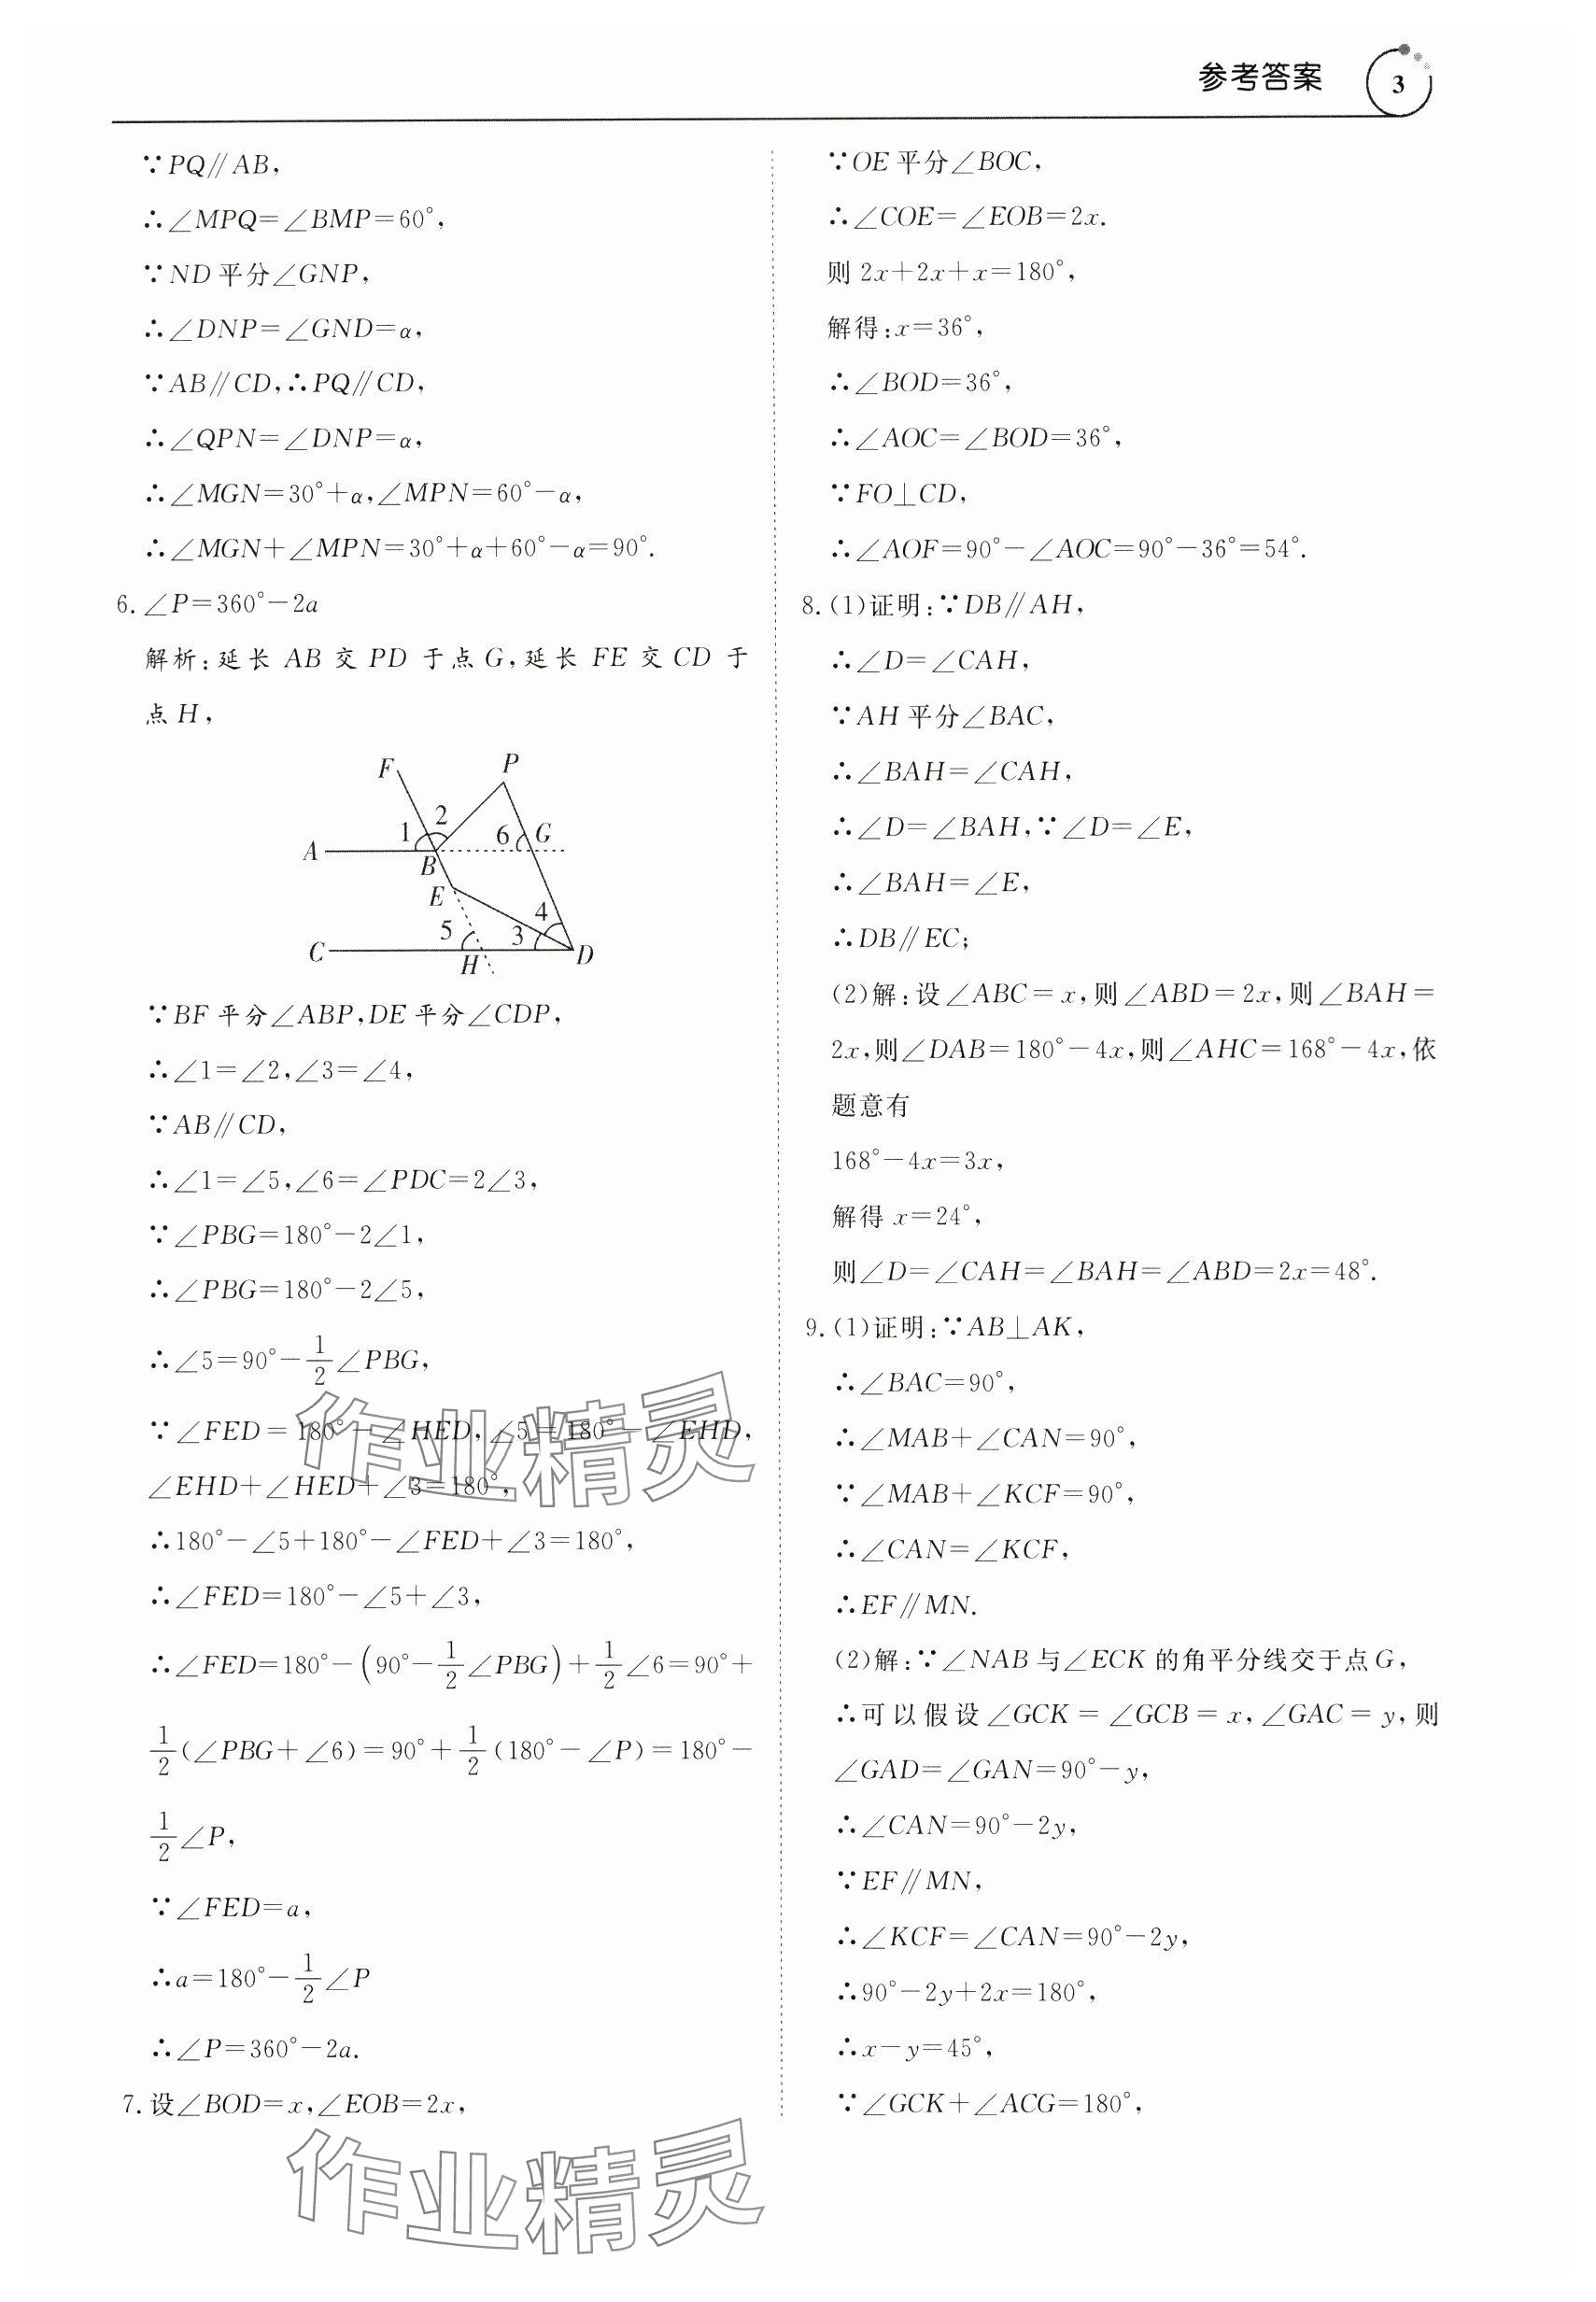 参考答案 3
∵PQ∥AB,
∴∠MPQ=∠BMP=60°,
∵ND平分∠GNP,
∴∠DNP=∠GND=α,
∵AB∥CD,∴PQ∥CD,
∴∠QPN=∠DNP=α,
∴∠MGN=30°+α,∠MPN=60°-α,
∴∠MGN+∠MPN=30°+α+60°-α=90°.
6.∠P=360°-2a
解析:延长 AB 交 PD 于点G,延长 FE 交 CD 于
点H,
F
P
1
2
6
G
A
B
E
4
5
3
C
H
D
∵BF平分∠ABP,DE平分∠CDP,
∴∠1=∠2,∠3=∠4,
∵AB∥CD,
∴∠1=∠5,∠6=∠PDC=2∠3,
∵∠PBG=180°-2∠1,
∴∠PBG=180°-2∠5,
∴∠5=90°-1/2∠PBG,
∵∠FED=180°-∠HED,∠5=180°-∠EHD,
∠EHD+∠HED+∠3=180°,
∴180°-∠5+180°-∠FED+∠3=180°,
∴∠FED=180°-∠5+∠3,
∴∠FED=180°-(90°-1/2∠PBG)+1/2∠6=90°+
1/2(∠PBG+∠6)=90°+1/2(180°-∠P)=180°-
1/2∠P,
∵∠FED=a,
∴a=180°-1/2∠P
∴∠P=360°-2a.
7.设∠BOD=x,∠EOB=2x,
∵OE平分∠BOC,
∴∠COE=∠EOB=2x.
则2x+2x+x=180°,
解得:x=36°,
∴∠BOD=36°,
∴∠AOC=∠BOD=36°,
∵FO⊥CD,
∴∠AOF=90°-∠AOC=90°-36°=54°.
8.(1)证明:∵DB∥AH,
∴∠D=∠CAH,
∵AH平分∠BAC,
∴∠BAH=∠CAH,
∴∠D=∠BAH,∵∠D=∠E,
∴∠BAH=∠E,
∴DB∥EC;
(2)解:设∠ABC=x,则∠ABD=2x,则∠BAH=
2x,则∠DAB=180°-4x,则∠AHC=168°-4x,依
题意有
168°-4x=3x,
解得x=24°,
则∠D=∠CAH=∠BAH=∠ABD=2x=48°.
9.(1)证明:∵AB⊥AK,
∴∠BAC=90°,
∴∠MAB+∠CAN=90°,
∵∠MAB+∠KCF=90°,
∴∠CAN=∠KCF,
∴EF∥MN.
(2)解:∵∠NAB与∠ECK的角平分线交于点G,
∴可以假设∠GCK=∠GCB=x,∠GAC=y,则
∠GAD=∠GAN=90°-y,
∴∠CAN=90°-2y,
∵EF∥MN,
∴∠KCF=∠CAN=90°-2y,
∴90°-2y+2x=180°,
∴x-y=45°,
∵∠GCK+∠ACG=180°,
作业精灵
作业精灵